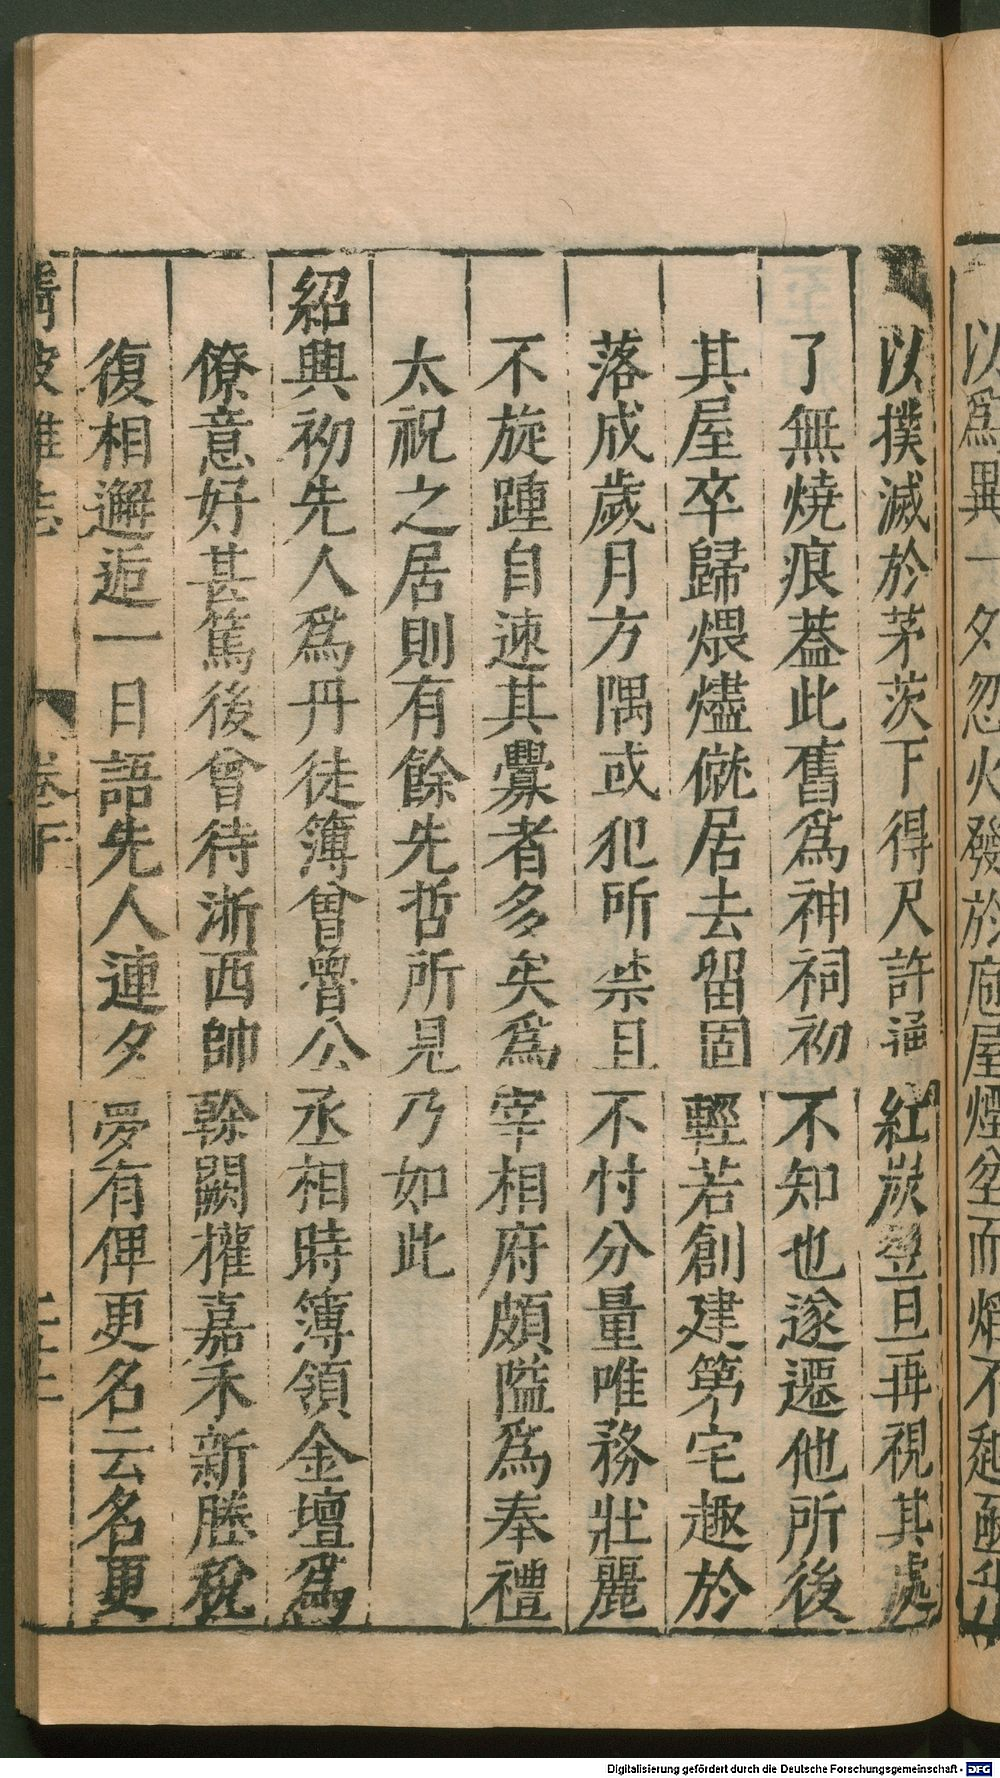 以爲異一夕忽火發於庖屋煙坌而焰不起亟升
以撲滅於茅茨下得尺許通紅炭翌旦再視其處
了無燒痕葢此舊爲神祠初不知也遂遷他所後
其屋卒歸煨燼僦居去留固輕若創建第宅趣於
落成歲月方隅或犯所禁且不忖分量唯務壯麗
不旋踵自速其釁者多矣爲宰相府頗隘爲奉禮
太祝之居則有餘先哲所見乃如此
紹興初先人爲丹徒簿曾魯公丞相時簿領金壇爲
僚意好甚篤後曾待淛西帥幹闕權嘉禾新塍稅
復相邂逅一日語先人連夕夢有俾更名云名更
清波雜志 卷下
Digitalisierung gefördert durch die Deutsche Forschungsgemeinschaft - DFG